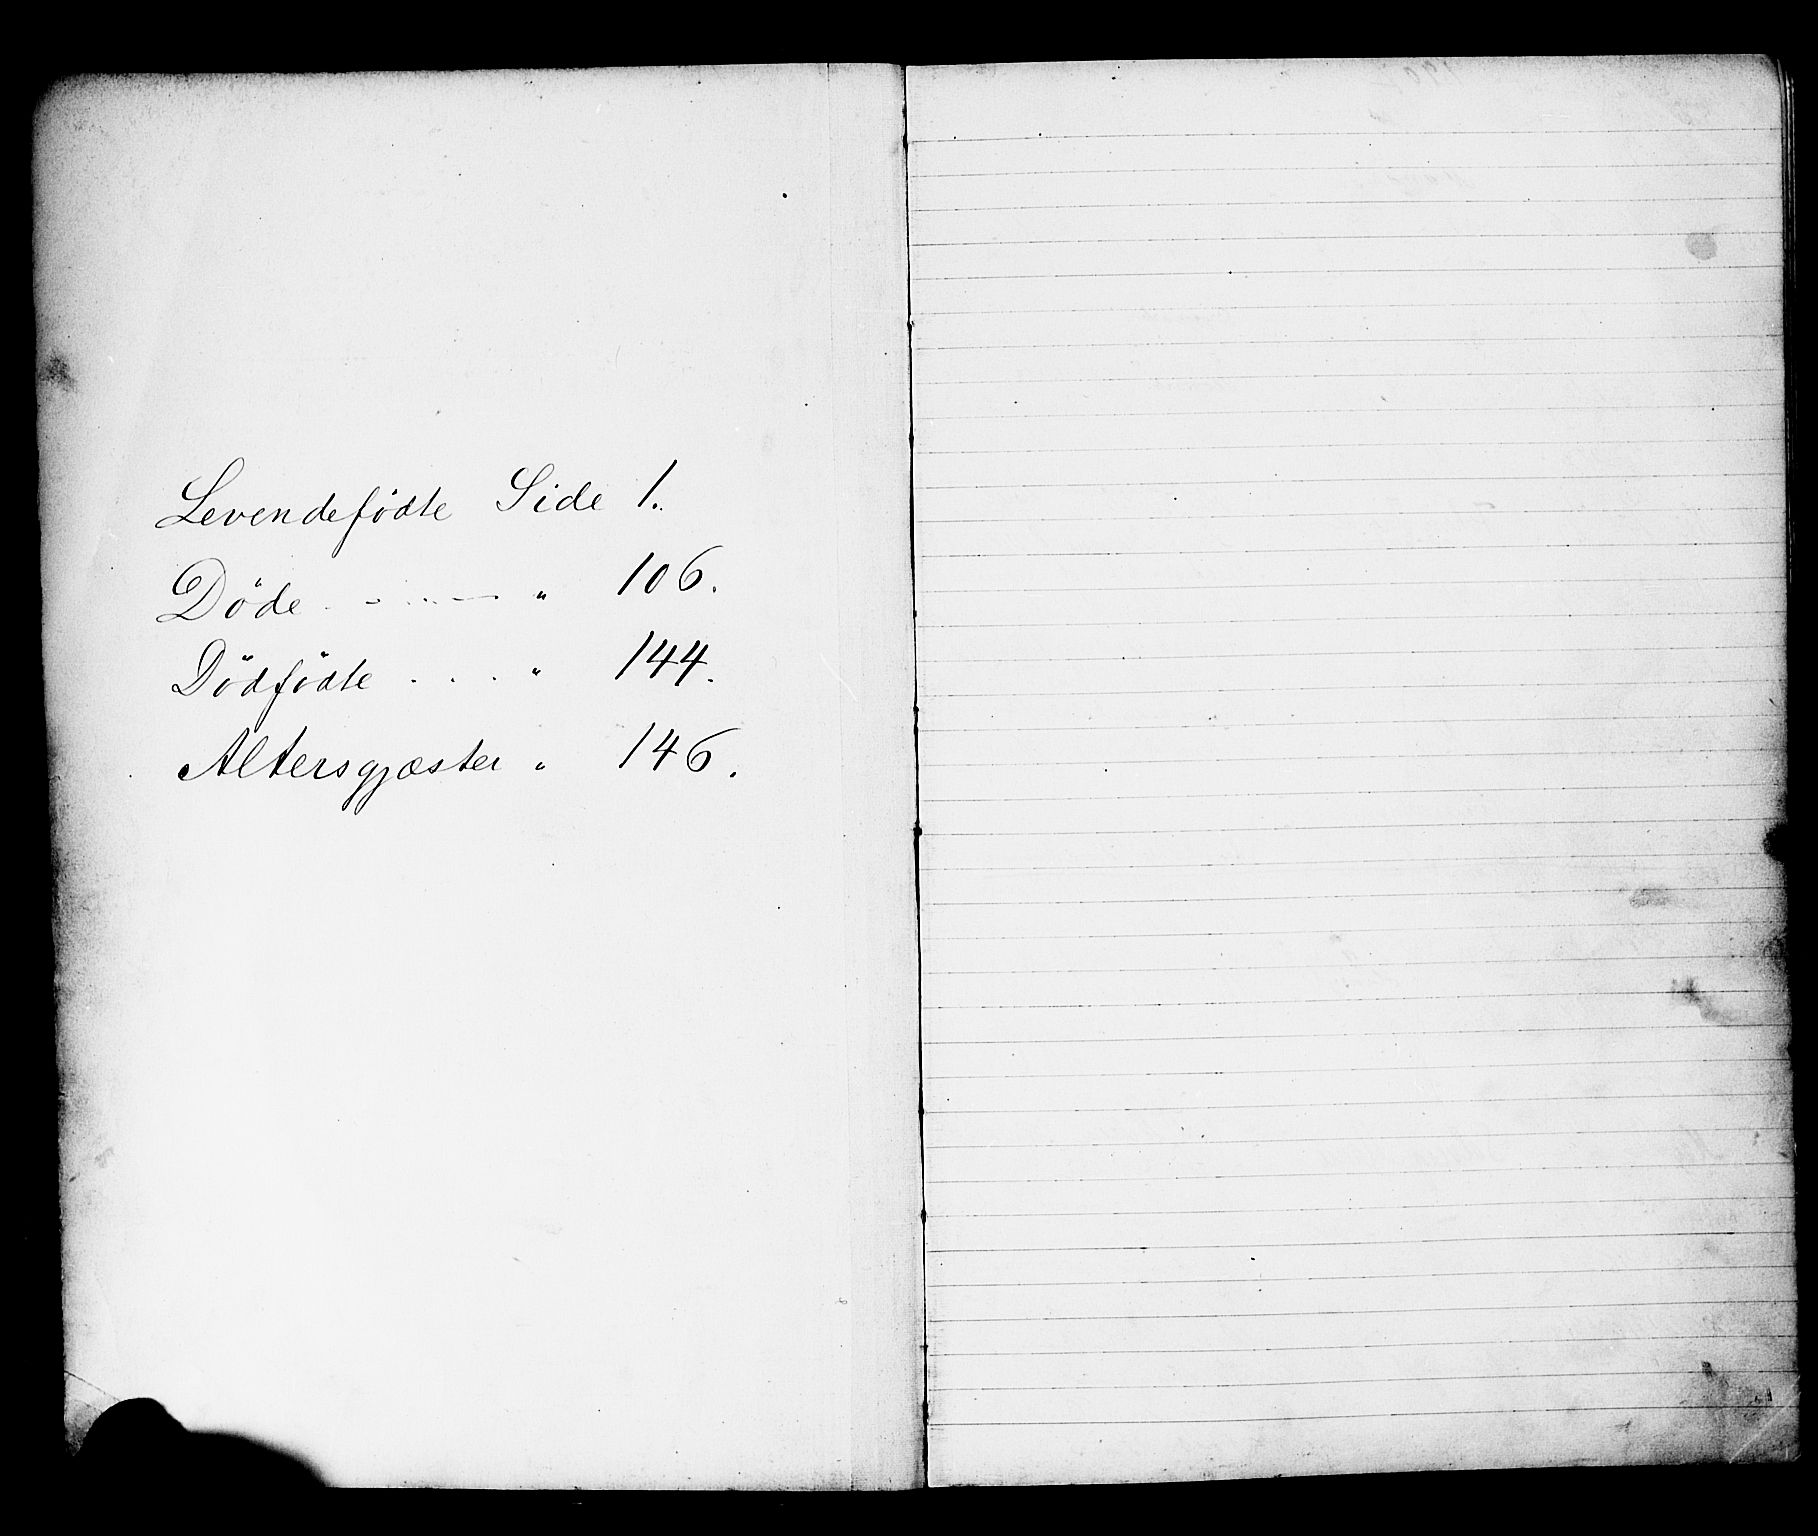 Levendefödte Side 1.
Döde . - . . . - - " 106.
Dödfödte . . . " 144.
Altersgjæster " 146.